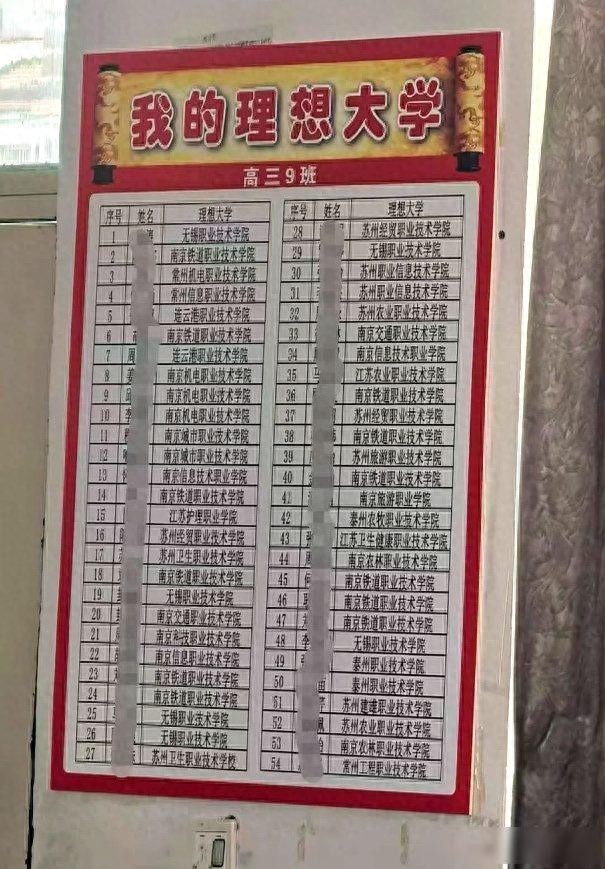 我的理想大学
高三9班
序号 姓名 理想大学
1 无锡职业技术学院
2 南京铁道职业技术学院
3 常州机电职业技术学院
4 常州信息职业技术学院
5 连云港职业技术学院
6 南京铁道职业技术学院
7 周 连云港职业技术学院
8 姜 南京机电职业技术学院
9 南京机电职业技术学院
10 李 南京机电职业技术学院
11 南京城市职业技术学院
12 南京城市职业技术学院
13 南京信息技术职业学院
14 南京铁道职业技术学院
15 江苏护理职业学院
16 苏州经贸职业技术学院
17 苏州卫生职业技术学院
18 南京铁道职业技术学院
19 无锡职业技术学院
20 南京交通职业技术学院
21 南京科技职业技术学院
22 南京信息职业技术学院
23 南京铁道职业技术学院
24 南京铁道职业技术学院
25 无锡职业技术学院
26 无锡职业技术学院
27 苏州卫生职业技术学校
序号 姓名 理想大学
28 苏州经贸职业技术学院
29 无锡职业技术学院
30 苏州职业信息技术学院
31 苏州职业信息技术学院
32 苏州农业职业技术学院
33 南京交通职业技术学院
34 南京信息技术职业学院
35 马 江苏农业职业技术学院
36 南京铁道职业技术学院
37 苏州经贸职业技术学院
38 南京铁道职业技术学院
39 苏州旅游职业技术学院
40 南京铁道职业技术学院
41 南京旅游职业学院
42 泰州农牧职业技术学院
43 张 江苏卫生健康职业技术学院
44 周 南京农林职业技术学院
45 何 南京铁道职业技术学院
46 南京铁道职业技术学院
47 南京铁道职业技术学院
48 李 无锡职业技术学院
49 泰州职业技术学院
50 泰州职业技术学院
51 苏州建雄职业技术学院
52 苏州农业职业技术学院
53 南京农林职业技术学院
54 常州工程职业技术学院